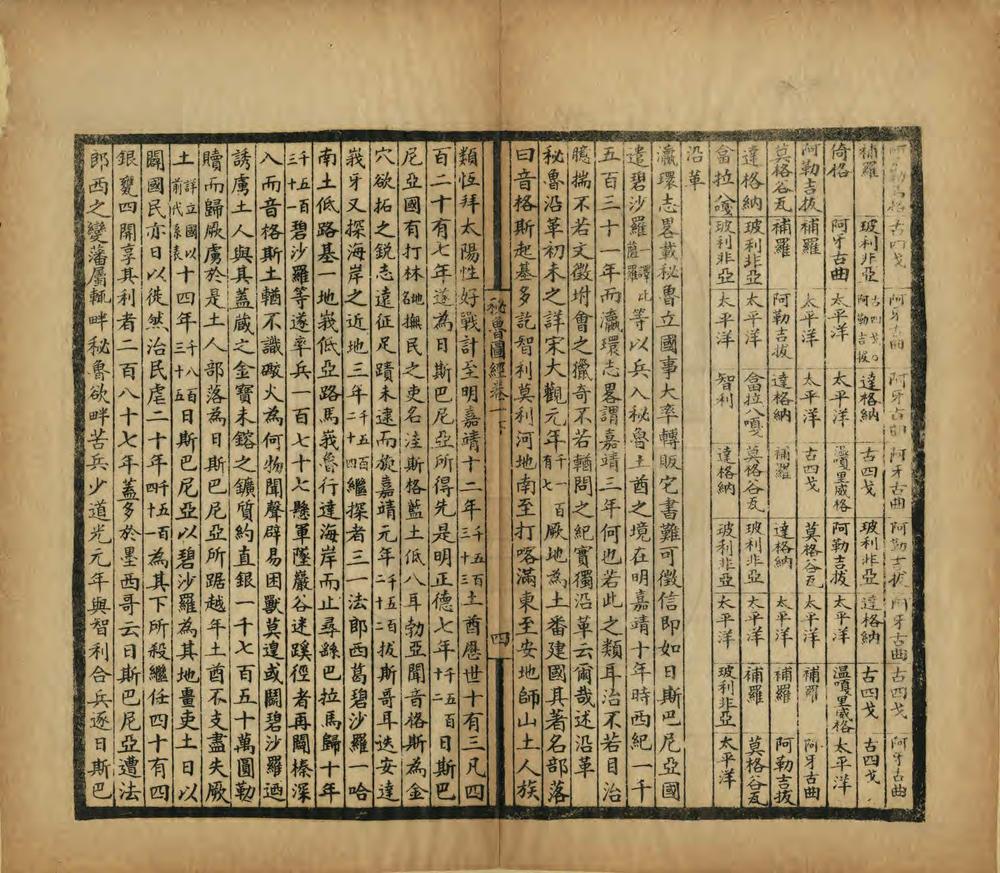 阿勒吉格 古四戈 阿牙古曲 阿牙古曲 阿牙古曲 阿勒吉拔 阿牙古曲 古四戈 阿牙古曲
補羅 玻利非亞 古四戈阿勒吉拔 達格納 古四戈 玻利非亞 達格納 古四戈 古四戈
倚格 阿牙古曲 太平洋 太平洋 溫嘎里威格 阿勒吉拔 太平洋 溫嘎里威格 太平洋
阿勒吉拔 補羅 太平洋 太平洋 古四戈 莫格谷瓦 太平洋 補羅 阿牙古曲
莫格谷瓦 補羅 阿勒吉拔 達格納 補羅 達格納 太平洋 補羅 阿勒吉拔
達格納 玻利非亞 太平洋 畲拉八嘎 莫格谷瓦 玻利非亞 太平洋 補羅 莫格谷瓦
畲拉八嘎 玻利非亞 太平洋 智利 達格納 玻利非亞 太平洋 玻利非亞 太平洋
沿革
瀛環志畧載秘魯立國事大率轉販它書難可徵信即如日斯巴尼亞國
遣碧沙羅一譯比薩羅等以兵入秘魯土酋之境在明嘉靖十年時西紀一千
五百三十一年而瀛環志畧謂嘉靖三年何也若此之類耳治不若目治
臆揣不若文徵坿會之獵奇不若輶問之紀實獨沿革云爾哉述沿革
秘魯沿革初未之詳宋大觀元年一千一百有七厥地為土番建國其著名部落
曰音格斯起基多訖智利莫利河地南至打喀滿東至安地師山土人族
秘魯圖經卷一下
四
類恆拜太陽性好戰計至明嘉靖十二年千五百三十三土酋應世十有三凡四
百二十有七年遂為日斯巴尼亞所得先是明正德七年千五百十二日斯巴
尼亞國有打林地名撫民之吏名洼斯格藍土低八耳勃亞聞音格斯為金
穴欲拓之銳志遠征足蹟未逮而旋嘉靖元年千五百二十二拔斯哥耳迭安達
峩牙又探海岸之近地三年千五百二十四繼探者三一法郎西葛碧沙羅一哈
南土低路基一地峩低亞路馬峩魯行達海岸而止尋繇巴拉馬歸十年
千五百三十一碧沙羅等遂率兵一百七十七懸軍墜巖谷迷蹊徑者再闖榛深
入而音格斯土輶不識礮火為何物聞聲辟易困獸莫遑或鬬碧沙羅迺
誘虜土人與其蓋蔵之金寶未鎔之鑛質約直銀一千七百五十萬圓勒
贖而歸厥虜於是土人部落為日斯巴尼亞所踞越年土酋不支盡失厥
土詳立國以前代系表十四年千八百三十五日斯巴尼亞以碧沙羅為其地畺吏土日以
闢國民亦日以徙然治民虐二十年千五百四十一為其下所殺繼任四十有四
銀甕四開享其利者二百八十七年蓋多於墨西哥云日斯巴尼亞遭法
郎西之變藩屬輒畔秘魯欲畔苦兵少道光元年與智利合兵逐日斯巴